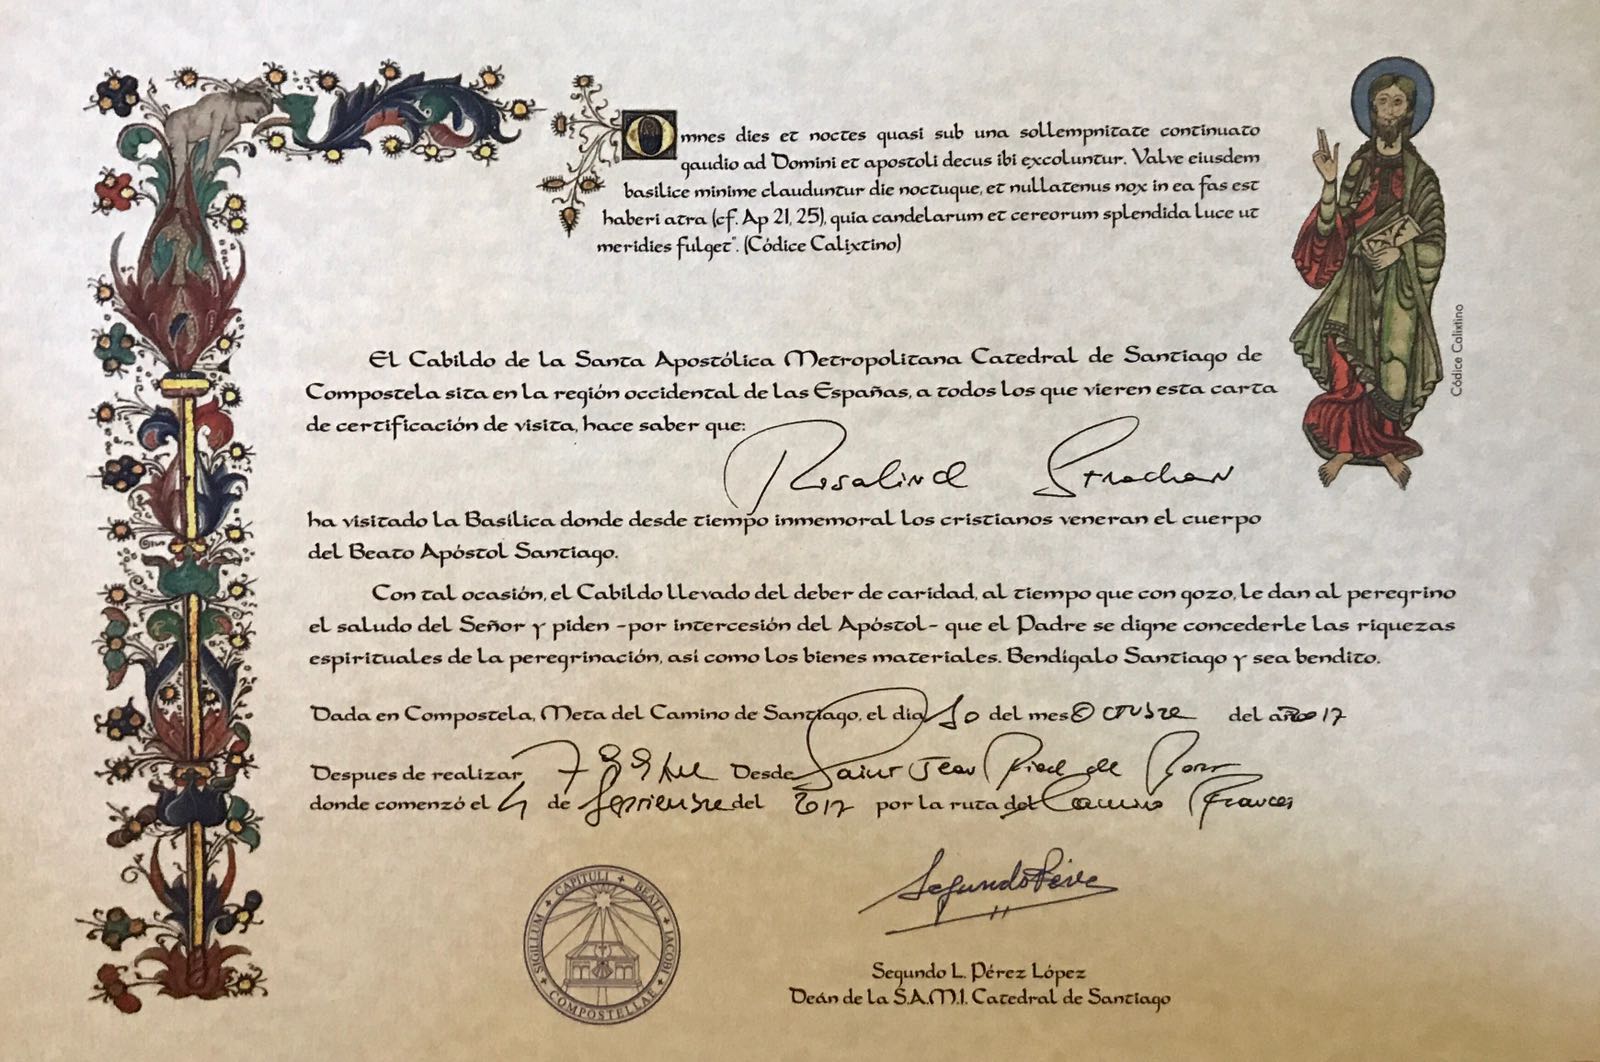 Omnes dies et noctes quasi sub una sollempnitate continuato
gaudio ad Domini et apostoli decus ibi excoluntur. Valve eiusdem
basilice minime clauduntur die noctuque, et nullatenus nox in ea fas est
haberi atra (cf. Ap 21, 25), quia candelarum et cereorum splendida luce ut
meridies fulget". (Códice Calixtino)
Códice Calixtino
El Cabildo de la Santa Apostólica Metropolitana Catedral de Santiago de
Compostela sita en la región occidental de las Españas, a todos los que vieren esta carta
de certificación de visita, hace saber que:
Rosalind Strachan
ha visitado la Basílica donde desde tiempo inmemoral los cristianos veneran el cuerpo
del Beato Apóstol Santiago.
Con tal ocasión, el Cabildo llevado del deber de caridad, al tiempo que con gozo, le dan al peregrino
el saludo del Señor y piden -por intercesión del Apóstol- que el Padre se digne concederle las riquezas
espirituales de la peregrinación, así como los bienes materiales. Bendígalo Santiago y sea bendito.
Dada en Compostela, Meta del Camino de Santiago, el día 10 del mes Octubre del año 2017
Despues de realizar 799 km Desde Saint Jean Pied de Port
donde comenzó el 4 de Septiembre del 2017 por la ruta del Camino Frances
SIGILLUM CAPITULI BEATI IACOBI COMPOSTELLAE
Segundo Pérez
Segundo L. Pérez López
Deán de la S.A.M.I. Catedral de Santiago